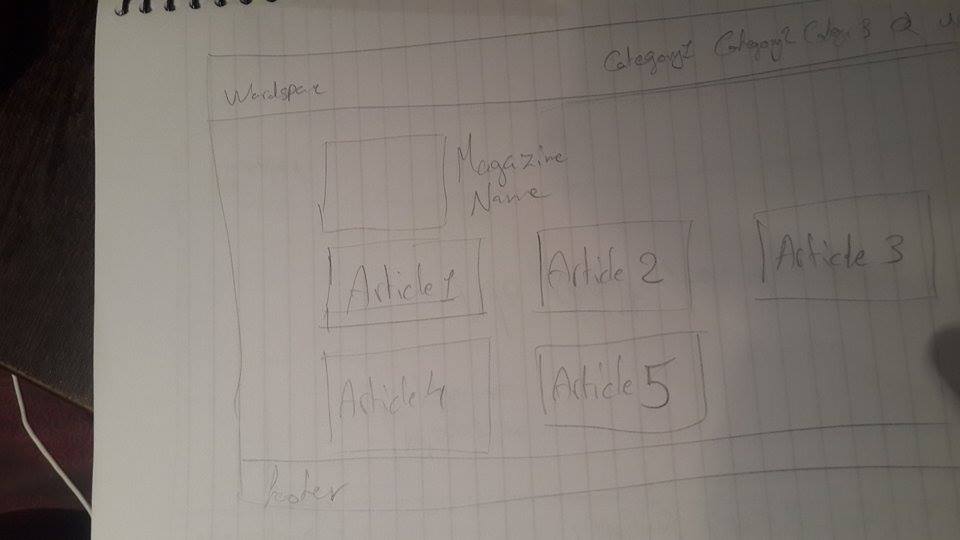 Category1 Category2 Categ 3
Wordspace
Magazine
Name
Article 1 Article 2 Article 3
Article 4 Article 5
footer